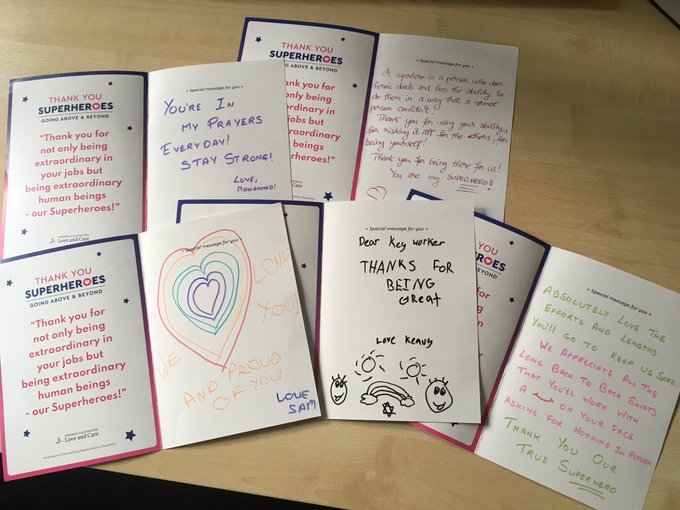 THANK YOU
SUPERHEROES
GOING ABOVE & BEYOND
"Thank you for
not only being
extraordinary in
your jobs but
being extraordinary
human beings
- our Superheroes!"
Love and Care
• Special message for you •
YOU'RE IN
MY PRAYERS
EVERYDAY!
STAY STRONG!
LOVE,
MOHAMMED
THANK YOU
SUPERHEROES
GOING ABOVE & BEYOND
• Special message for you •
A superhero is a person who does
heroic deeds and has the ability to
do them in a way that a normal
person couldn't.
Thank you for using your ability,
for risking it all for the others, for
being yourself!
Thank you for being there for us!
You are my SUPERHERO!
THANK YOU
SUPERHEROES
GOING ABOVE & BEYOND
"Thank you for
not only being
extraordinary in
your jobs but
being extraordinary
human beings
- our Superheroes!"
Love and Care
• Special message for you •
WE
LOVE
YOU
AND PROUD
OF YOU
LOVE
SAM
• Special message for you •
Dear Key worker
THANKS FOR
BEING
Great
Love Keavy
• Special message for you •
ABSOLUTELY LOVE THE
EFFORTS AND LENGTHS
YOU'LL GO TO KEEP US SAFE
WE APPRECIATE ALL THE
LONG BACK TO BACK SHIFTS
THAT YOU'LL WORK WITH
A ON YOUR FACE
ASKING FOR NOTHING IN RETURN
THANK YOU OUR
TRUE SUPERHERO